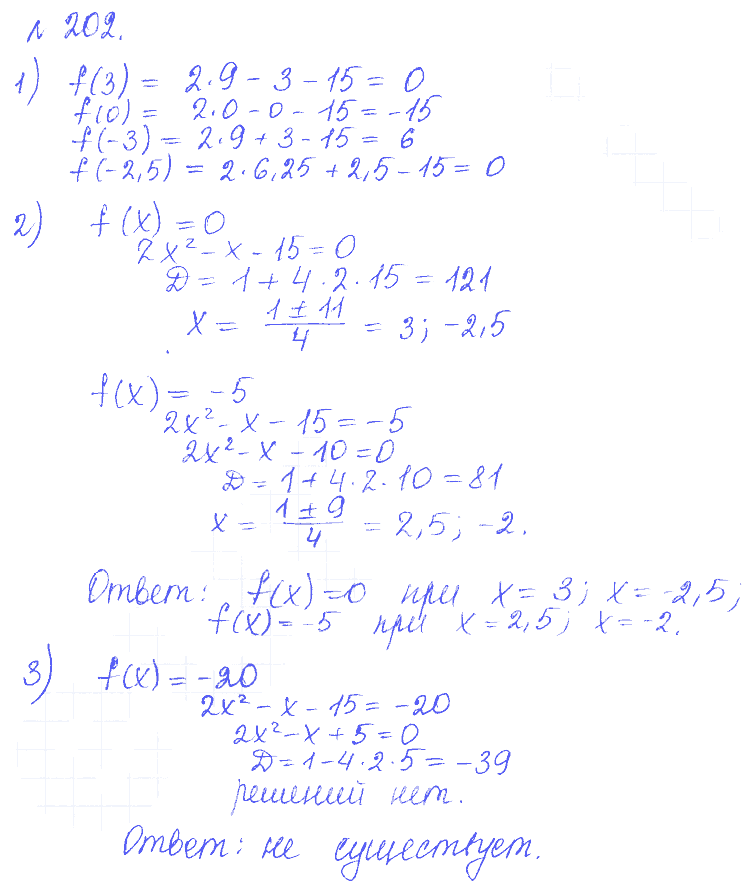 № 202.
1) f(3) = 2·9 - 3 - 15 = 0
f(0) = 2·0 - 0 - 15 = -15
f(-3) = 2·9 + 3 - 15 = 6
f(-2,5) = 2·6,25 + 2,5 - 15 = 0
2) f(x) = 0
2x² - x - 15 = 0
D = 1 + 4·2·15 = 121
x = (1 ± 11)/4 = 3; -2,5
f(x) = -5
2x² - x - 15 = -5
2x² - x - 10 = 0
D = 1 + 4·2·10 = 81
x = (1 ± 9)/4 = 2,5; -2.
Ответ: f(x) = 0 при x = 3; x = -2,5;
f(x) = -5 при x = 2,5; x = -2.
3) f(x) = -20
2x² - x - 15 = -20
2x² - x + 5 = 0
D = 1 - 4·2·5 = -39
решений нет.
Ответ: не существует.